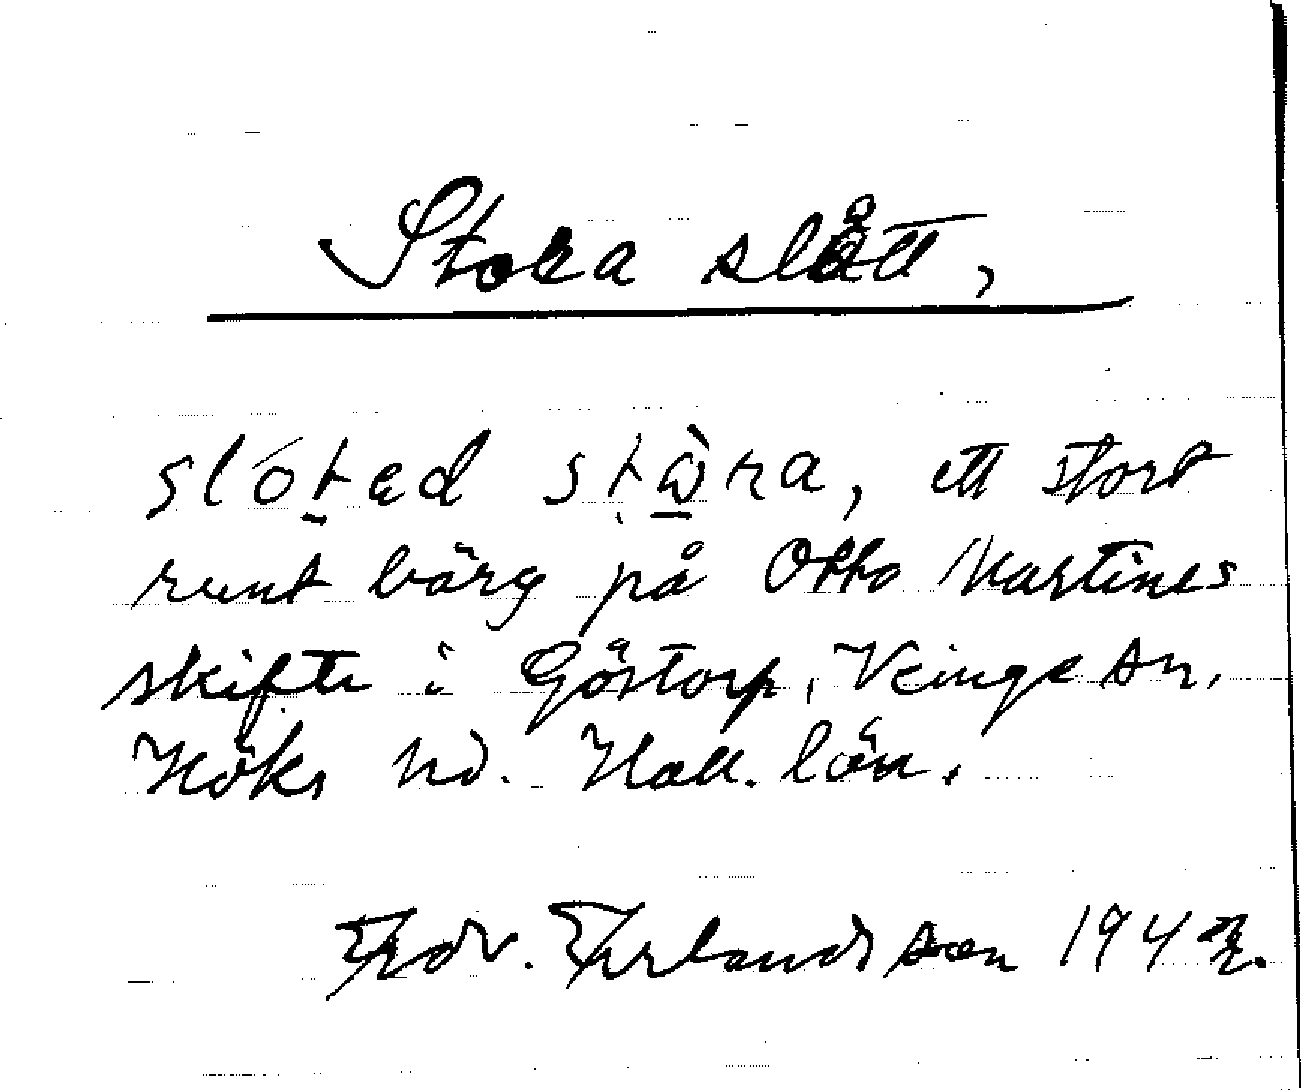 Stora slått,
slóted stàra, ett stort
runt bärg på Otto Martines
skifte i Göstorp, Veinge sn,
Höks hd. Hall. län.
Fredr. Erlandsson